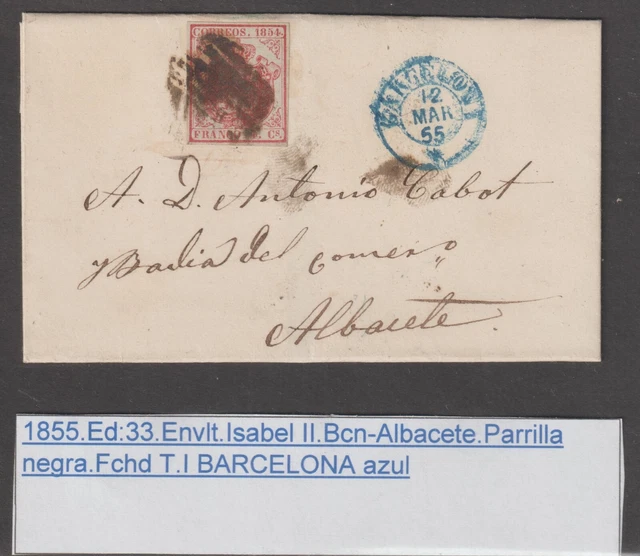 CORREOS. 1854.
FRANCO Cs.
BARCELONA
12
MAR
55
A. D. Antonio Cabot
y Badia del Comercio
Albacete.
1855.Ed:33.Envlt.Isabel II.Bcn-Albacete.Parrilla
negra.Fchd T.I BARCELONA azul